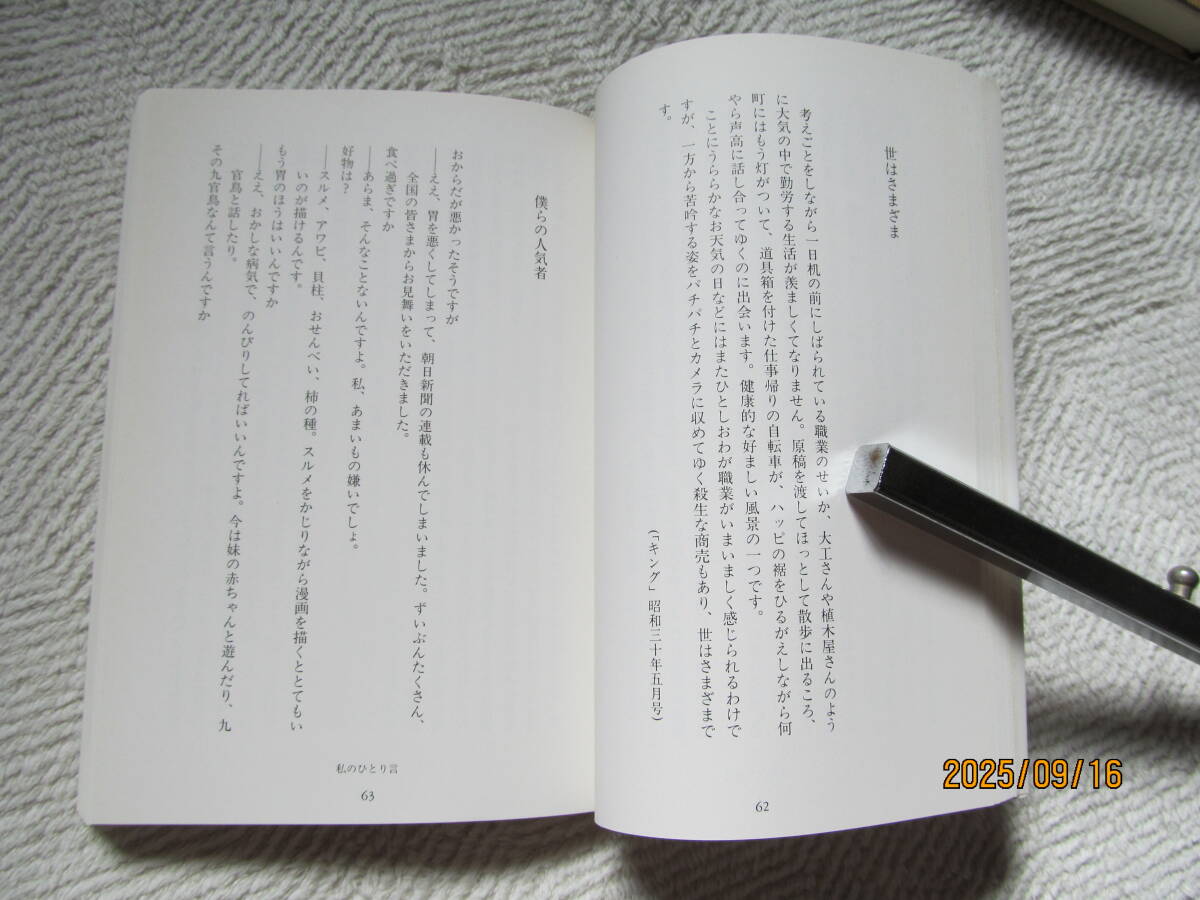 世はさまざま
考えごとをしながら一日机の前にしばられている職業のせいか、大工さんや植木屋さんのよう
に大気の中で勤労する生活が羨ましくてなりません。原稿を渡してほっとして散歩に出るころ、
町にはもう灯がついて、道具箱を付けた仕事帰りの自転車が、ハッピの裾をひるがえしながら何
やら声高に話し合ってゆくのに出会います。健康的な好ましい風景の一つです。
ことにうららかなお天気の日などにはまたひとしおわが職業がいまいましく感じられるわけで
すが、一方から苦吟する姿をパチパチとカメラに収めてゆく殺生な商売もあり、世はさまざまで
す。
(「キング」昭和三十年五月号)
62
僕らの人気者
おからだが悪かったそうですが
――ええ、胃を悪くしてしまって、朝日新聞の連載も休んでしまいました。ずいぶんたくさん、
全国の皆さまからお見舞いをいただきました。
食べ過ぎですか
――あらま、そんなことないんですよ。私、あまいもの嫌いでしょ。
好物は?
――スルメ、アワビ、貝柱、おせんべい、柿の種。スルメをかじりながら漫画を描くととてもい
いのが描けるんです。
もう胃のほうはいいんですか
――ええ、おかしな病気で、のんびりしてればいいんですよ。今は妹の赤ちゃんと遊んだり、九
官鳥と話したり。
その九官鳥なんて言うんですか
私のひとり言
63
2025/09/16